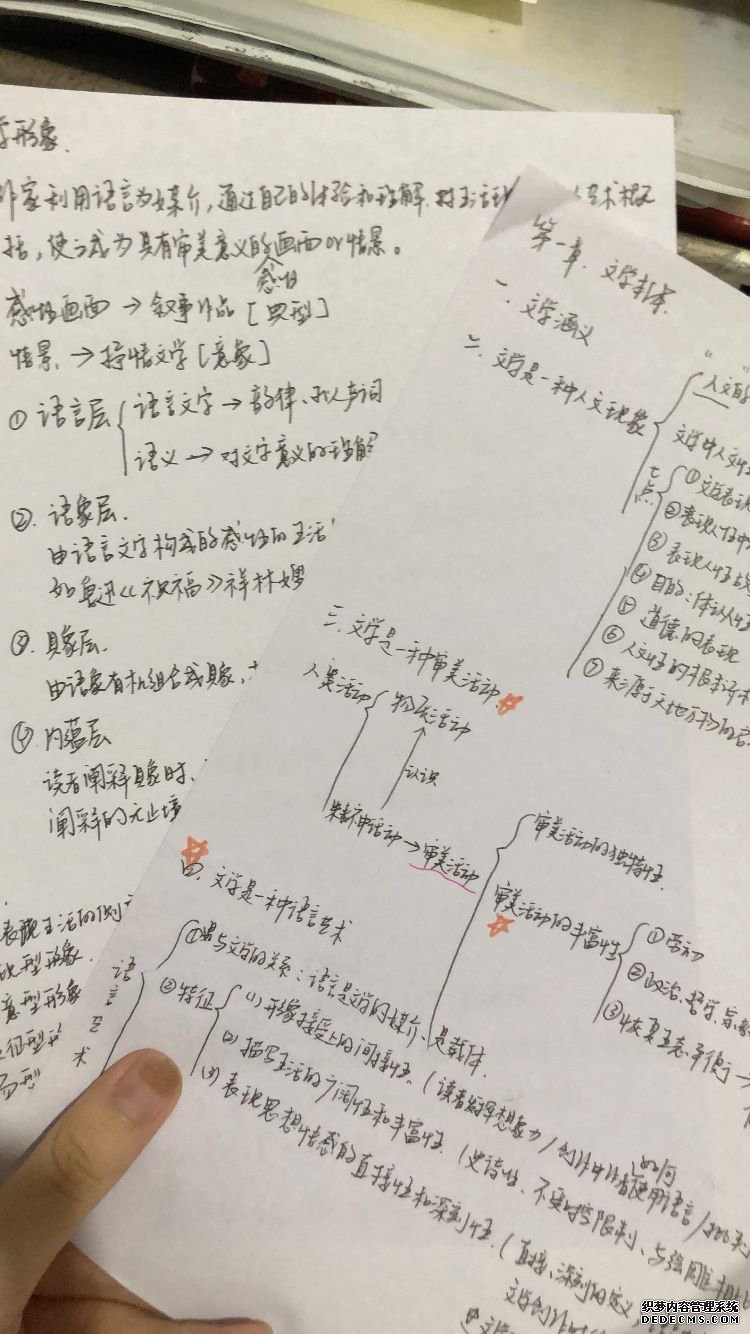 形象.
作家利用语言为媒介,通过自己的体验和理解.对生活
括,使之成为具有审美意义的画面or情景。
感性
感性画面→叙事作品[典型]
情景→抒情文学[意象]
①语言层
语言文字→韵律、拟人声词
语义→对文字意义的理解
②.语象层.
由语言文字构成的感性的生活
如鲁迅《祝福》祥林嫂
③.具象层.
由语象有机组合成具象、
④.内蕴层
读者阐释具象时、
阐释的无止境
表现生活的
型形象.
意型形象
征型
第一章.文学本体.
一.文学涵义
二.文学是一种人文现象
人文的
文学中人文性
七点
①文学表现
②表现人性中
③表现人性
④目的:体认人性
⑤道德的表现
⑥人文性的根本
⑦来源于天地万物的
三.文学是一种审美活动
人类活动
物质活动
认识
精神活动→审美活动
审美活动的独特性.
审美活动的丰富性
①劳动
②政治、哲学、宗
③恢复生态平衡→
四.文学是一种语言艺术
语言艺术
①与文学的关系:语言是文学的媒介、是载体.
②特征
(1)形象接受上的间接性.(读者发挥想象力/创作中作者如何使用语言/
(2)描写生活的广阔性和丰富性.(史诗性、不受时空限制、与
(3)表现思想情感的直接性和深刻性.(直接、深刻的定义
文学创作
织梦内容管理系统
DEDECMS.COM